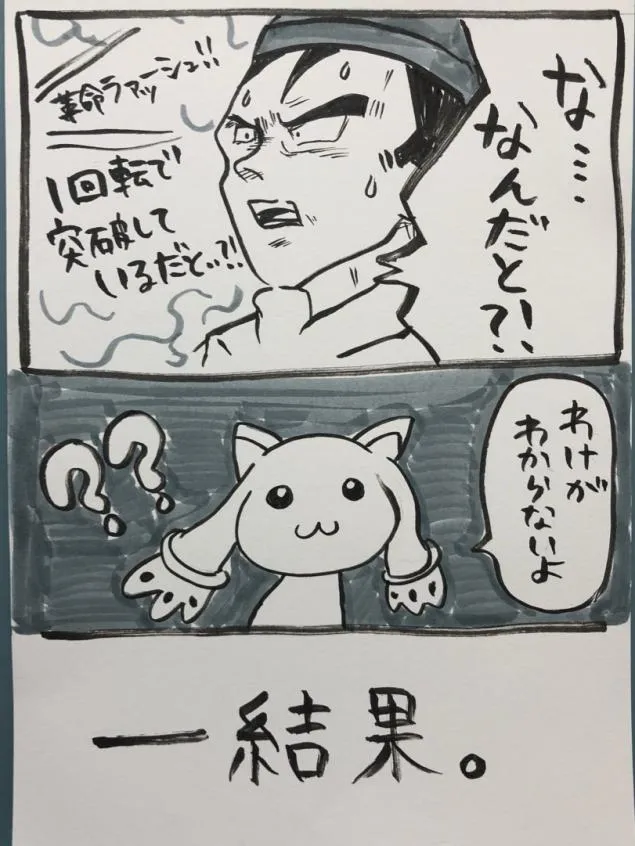 な…
なんだと?!
革命ラァーッシュ!!
1回転で
突破して
いるだと…?!
わけが
わからないよ
??
一結果。